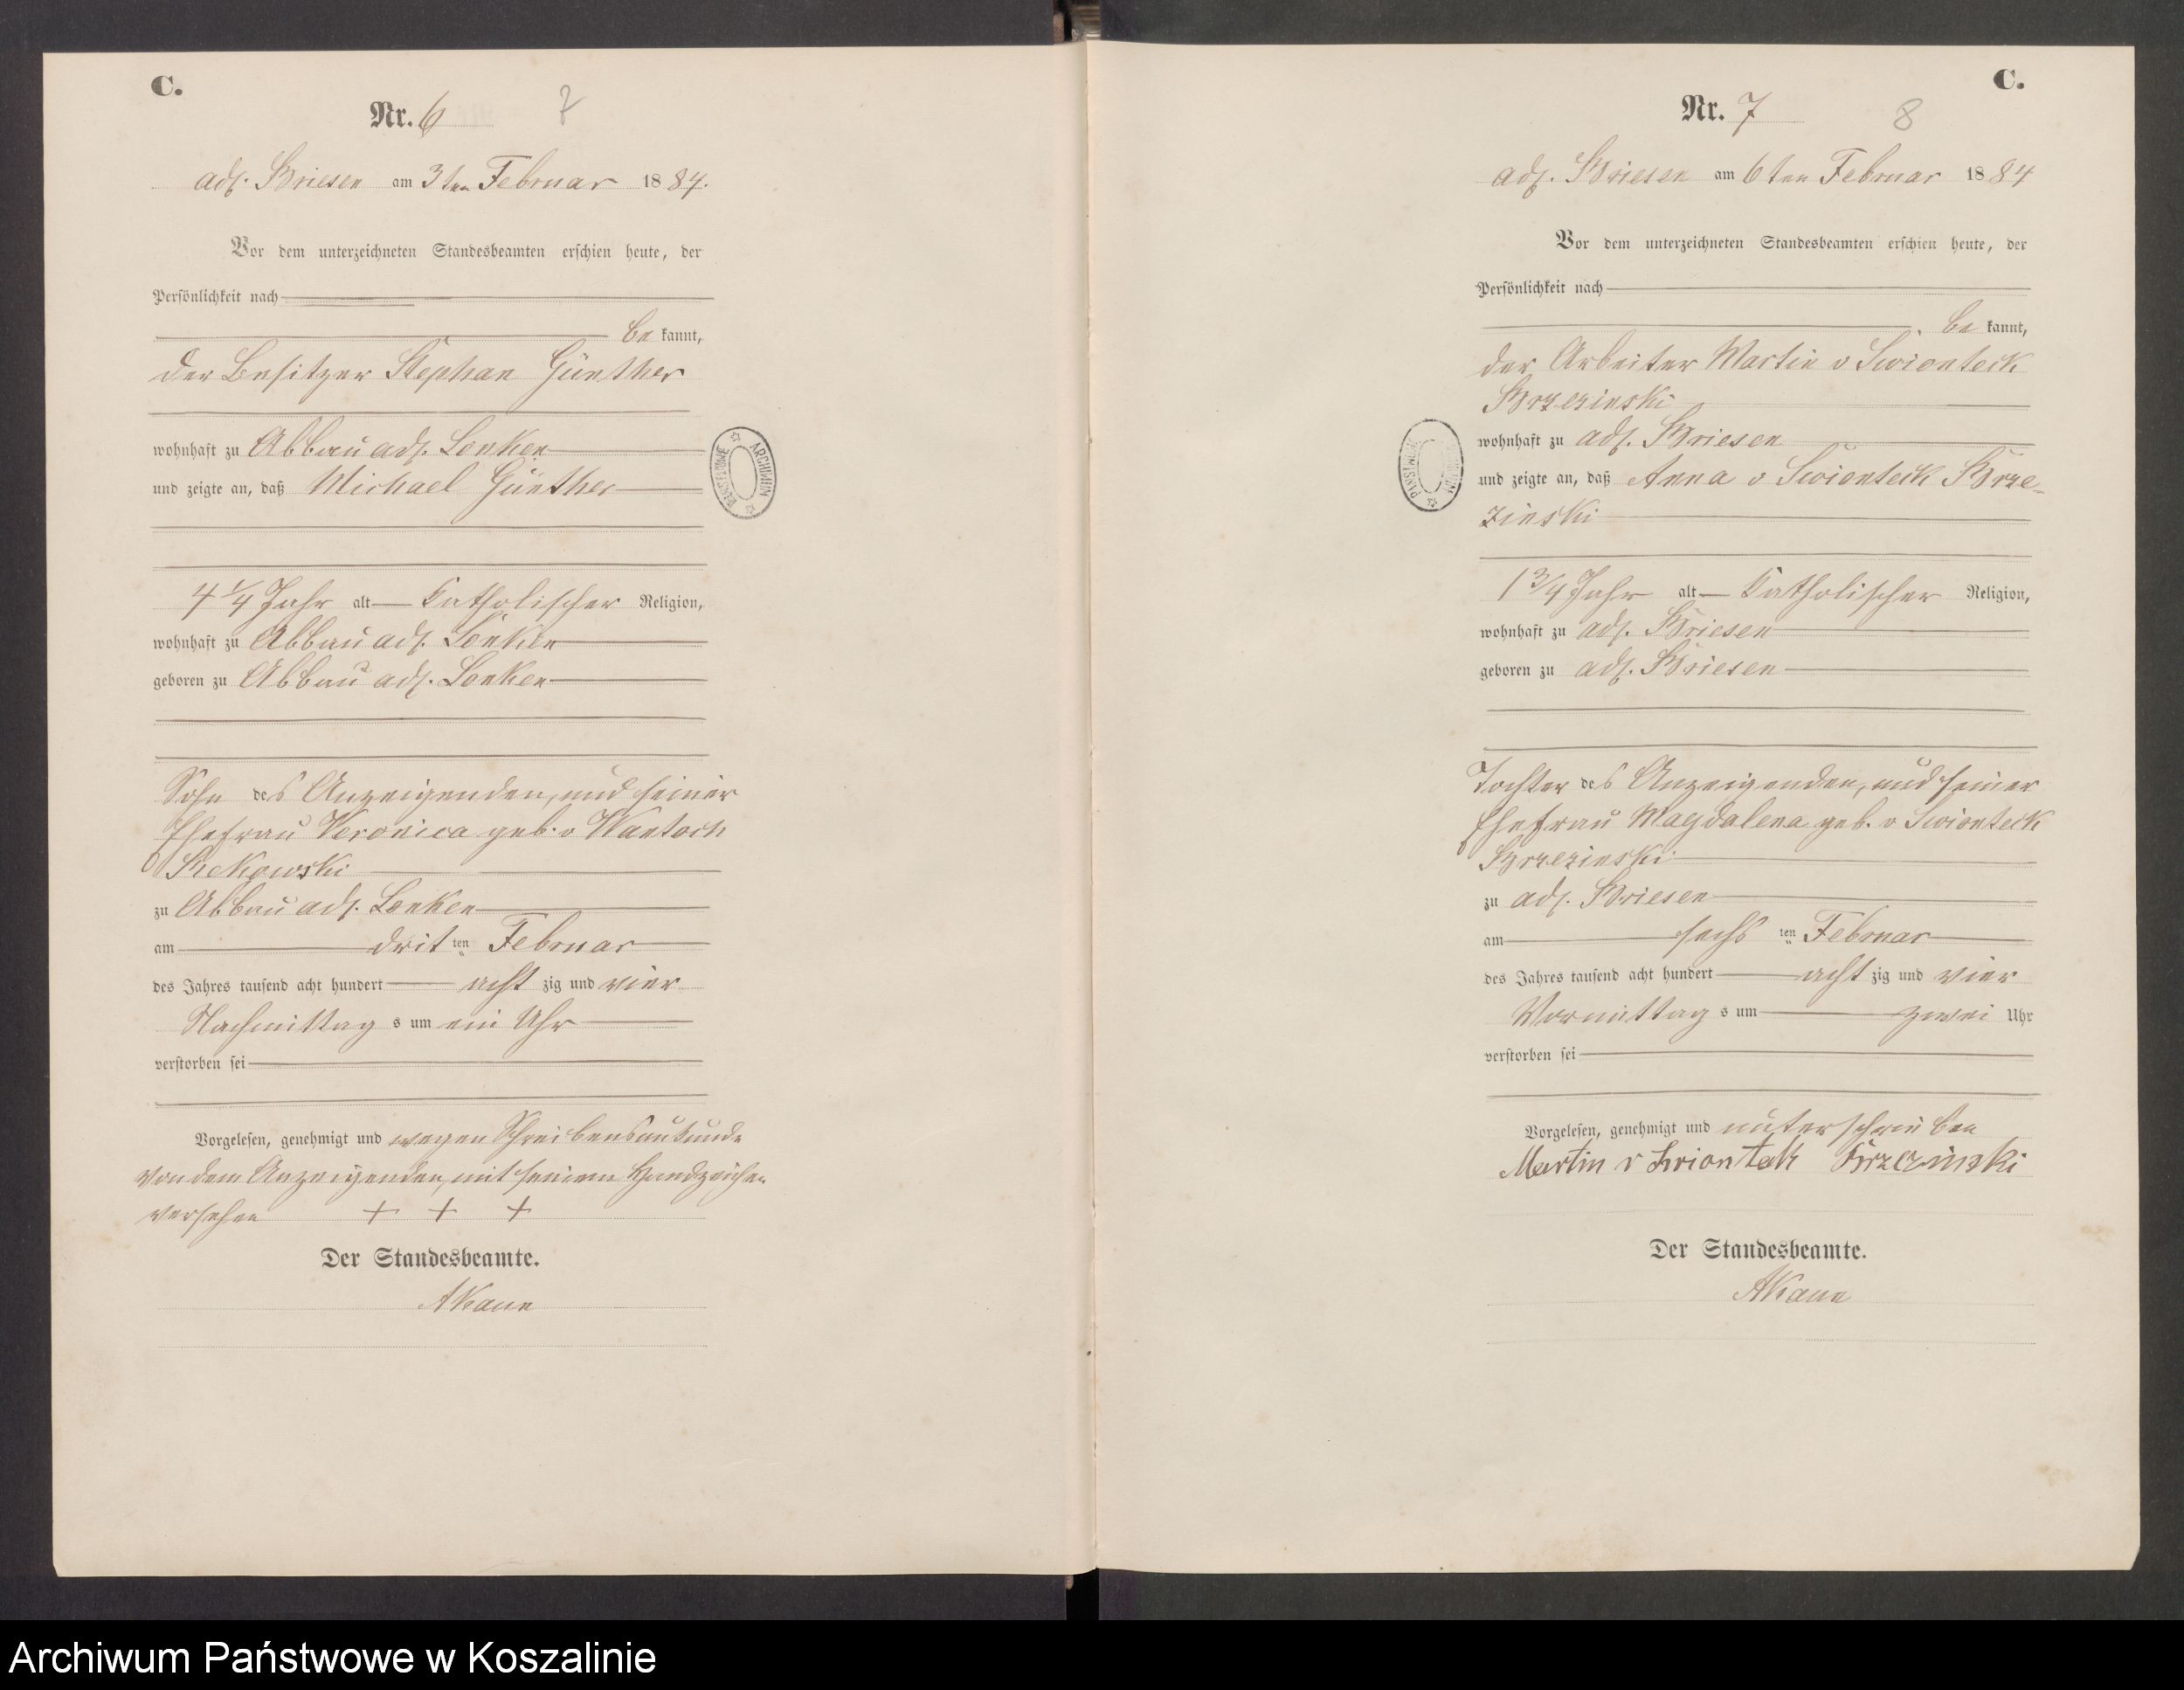 C.
Nr. 6
7
adl. Briesen am 3ten Februar 1884.
Vor dem unterzeichneten Standesbeamten erschien heute, der
Persönlichkeit nach
be kannt,
der Besitzer Stephan Günther
wohnhaft zu Abbau adl. Lonken
und zeigte an, daß Michael Günther
4 1/4 Jahr alt katholischer Religion,
wohnhaft zu Abbau adl. Lonken
geboren zu Abbau adl. Lonken
Sohn des Anzeigenden, und seiner
Ehefrau Veronica geb. v Wantoch
Rekowski
zu Abbau adl. Lonken
am drit ten Februar
des Jahres tausend acht hundert acht zig und vier
Nachmittag s um ein Uhr
verstorben sei
Vorgelesen, genehmigt und wegen Schreibensunkunde
von dem Anzeigenden, mit seinem Handzeichen
versehen + + +
Der Standesbeamte.
AKann
ARCHIWUM PAŃSTWOWE
C.
Nr. 7
8
adl. Briesen am 6ten Februar 1884
Vor dem unterzeichneten Standesbeamten erschien heute, der
Persönlichkeit nach
be kannt,
der Arbeiter Martin v Swionteck
Brzezinski
wohnhaft zu adl. Briesen
und zeigte an, daß Anna v Swionteck Brze-
zinski
1 3/4 Jahr alt katholischer Religion,
wohnhaft zu adl. Briesen
geboren zu adl. Briesen
Tochter des Anzeigenden, und seiner
Ehefrau Magdalena geb. v Swionteck
Brzezinski
zu adl. Briesen
am sechs ten Februar
des Jahres tausend acht hundert acht zig und vier
Vormittag s um zwei Uhr
verstorben sei
Vorgelesen, genehmigt und unterschrieben
Martin v Swiontek Brzezinski
Der Standesbeamte.
AKann
Archiwum Państwowe w Koszalinie